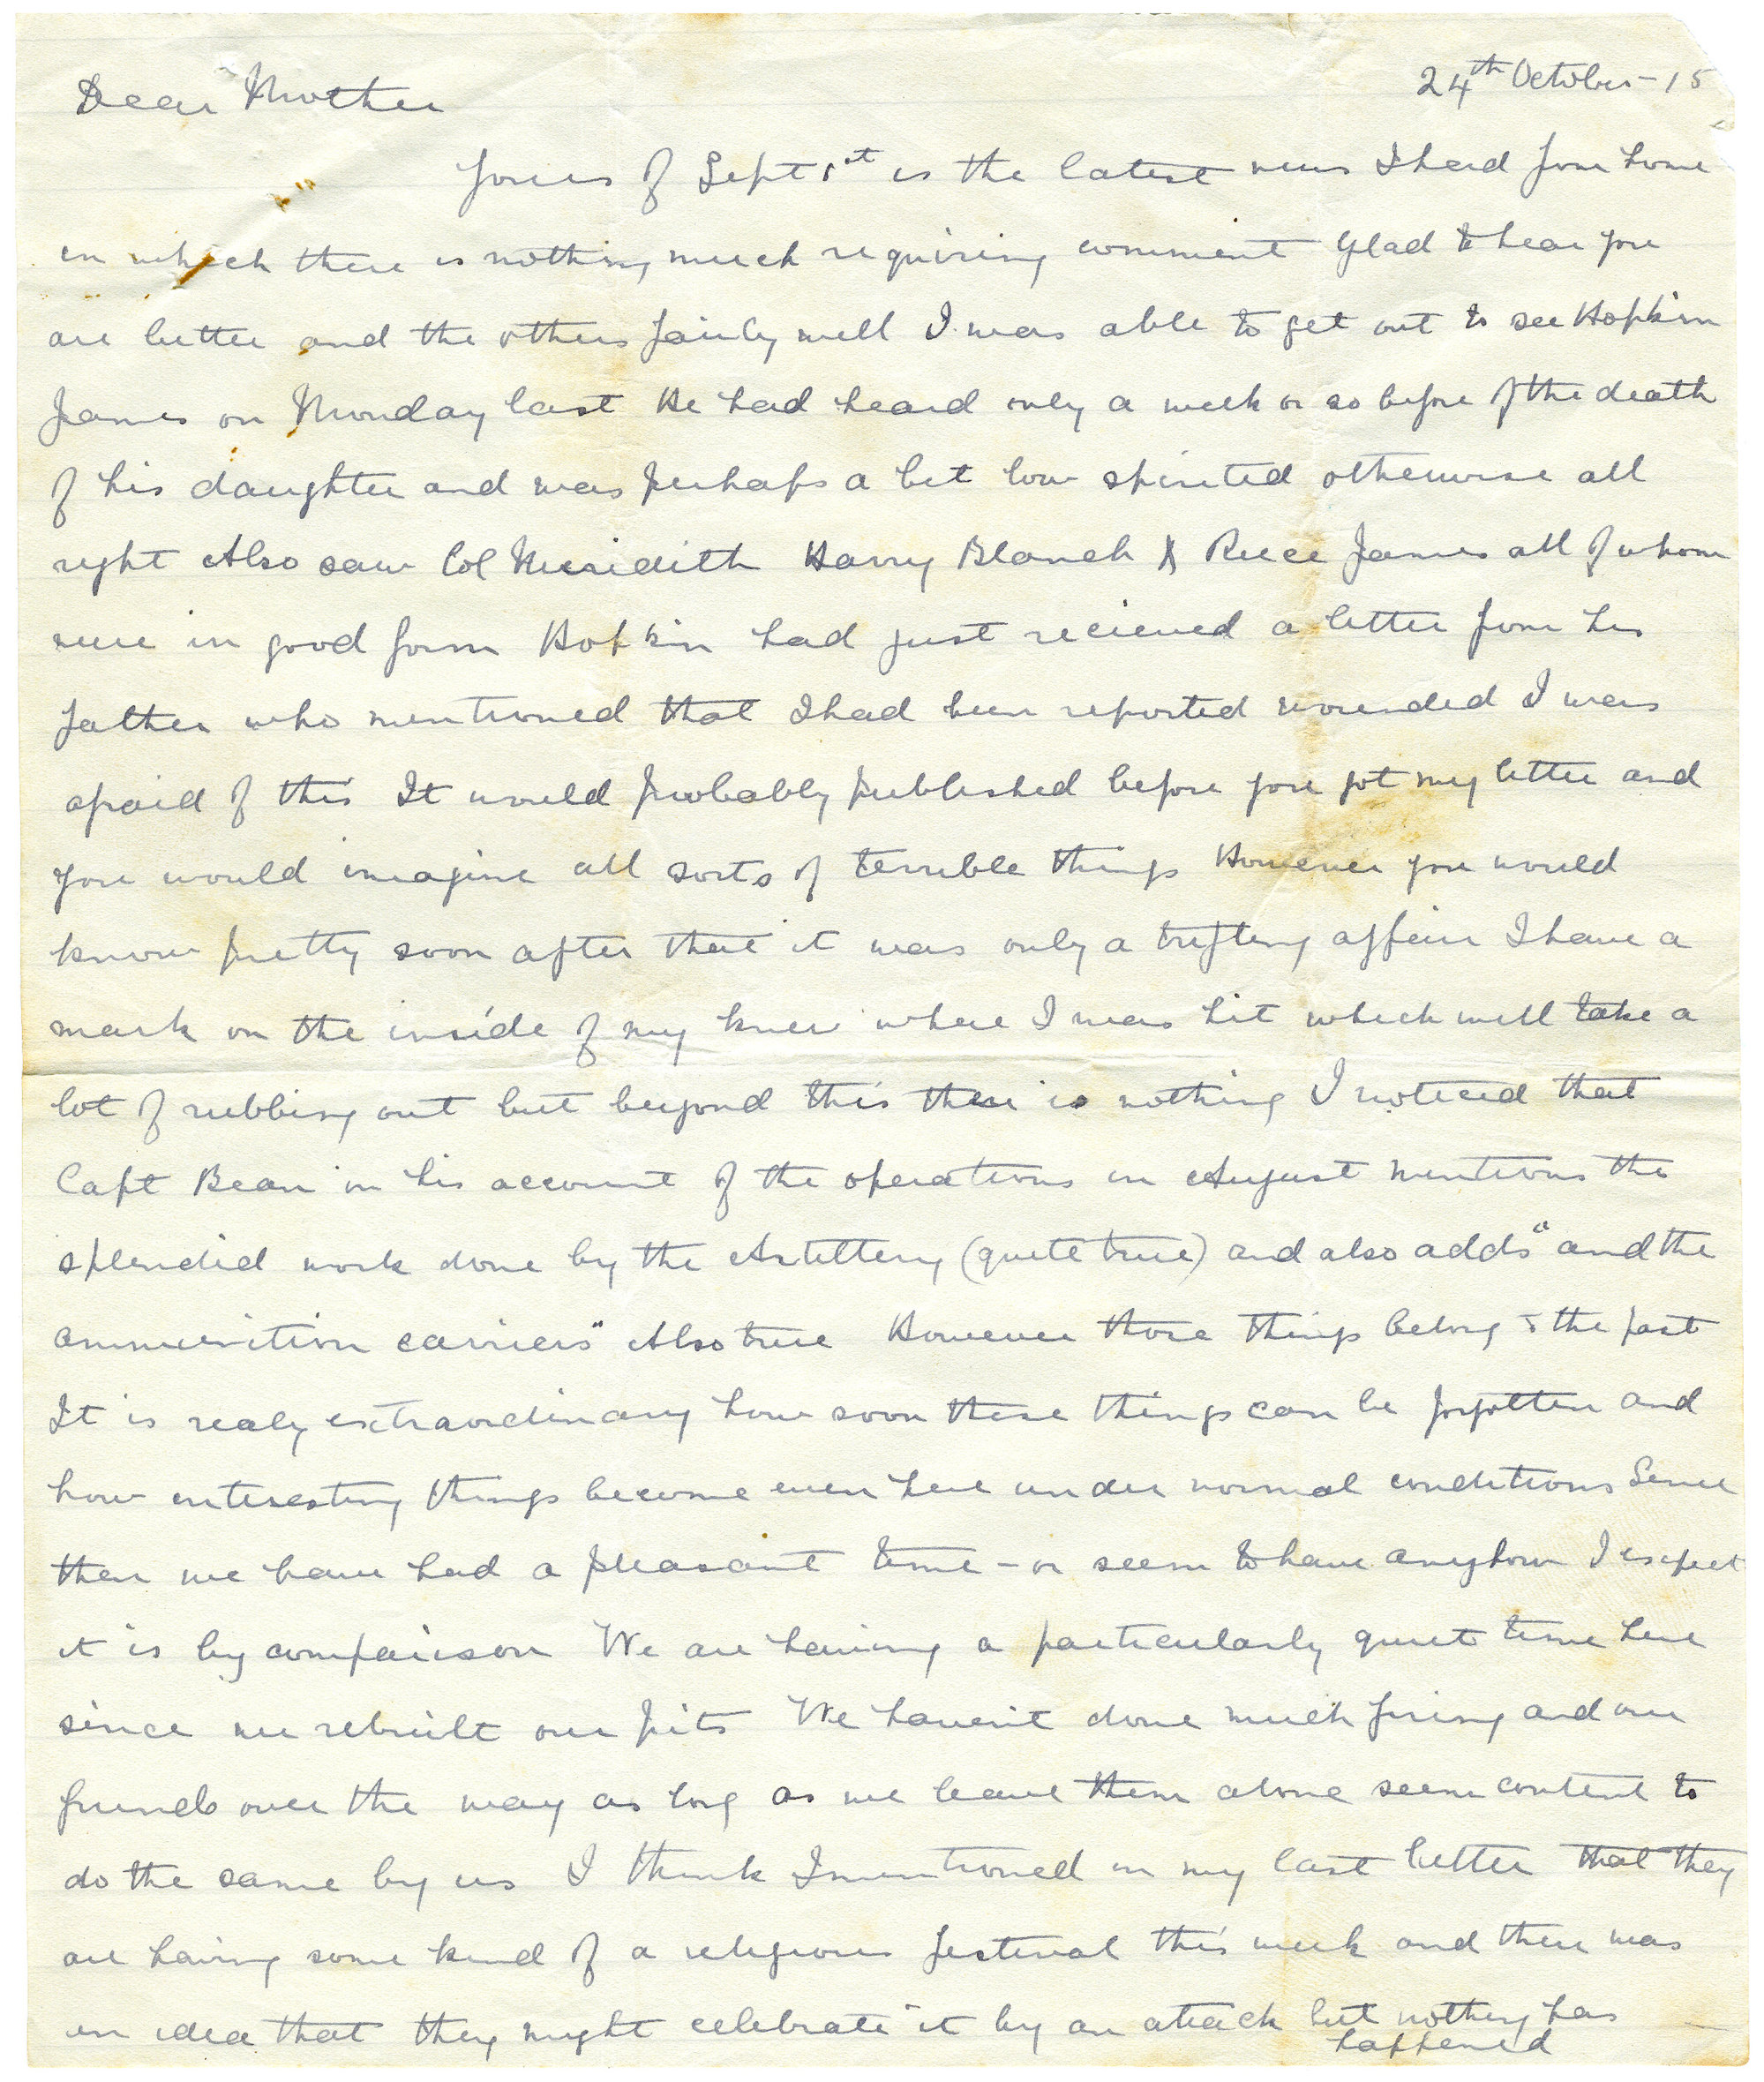 24th October - 15
Dear Mother
Yours of Sept 1st is the latest news I had from home
in which there is nothing much requiring comment Glad to hear you
are better and the others fairly well I was able to get out to see Hopkin
James on Monday last He had heard only a week or so before of the death
of his daughter and was perhaps a bit low spirited otherwise all
right Also saw Col Meridith Harry Blanch & Reece James all of whom
were in good form Hopkin had just recieved a letter from his
father who mentioned that I had been reported wounded I was
afraid of this It would probably published before you got my letter and
you would imagine all sorts of terrible things However you would
know pretty soon after that it was only a trifling affair I have a
mark on the inside of my knee where I was hit which will take a
lot of rubbing out but beyond this there is nothing I noticed that
Capt Bean in his account of the operations in August mentions the
splendid work done by the Artillery (quite true) and also adds "and the
ammunition carriers" Also true However those things belong to the past
It is realy extraordinary how soon these things can be forgotten and
how interesting things become even here under normal conditions Since
then we have had a pleasant time - or seem to have anyhow I expect
it is by compairison We are having a particularly quiet time here
since we rebuilt our pits We haven't done much firing and our
friends over the way as long as we leave them alone seem content to
do the same by us I think I mentioned in my last letter that they
are having some kind of a religious festival this week and there was
an idea that they might celebrate it by an attack but nothing has
happened